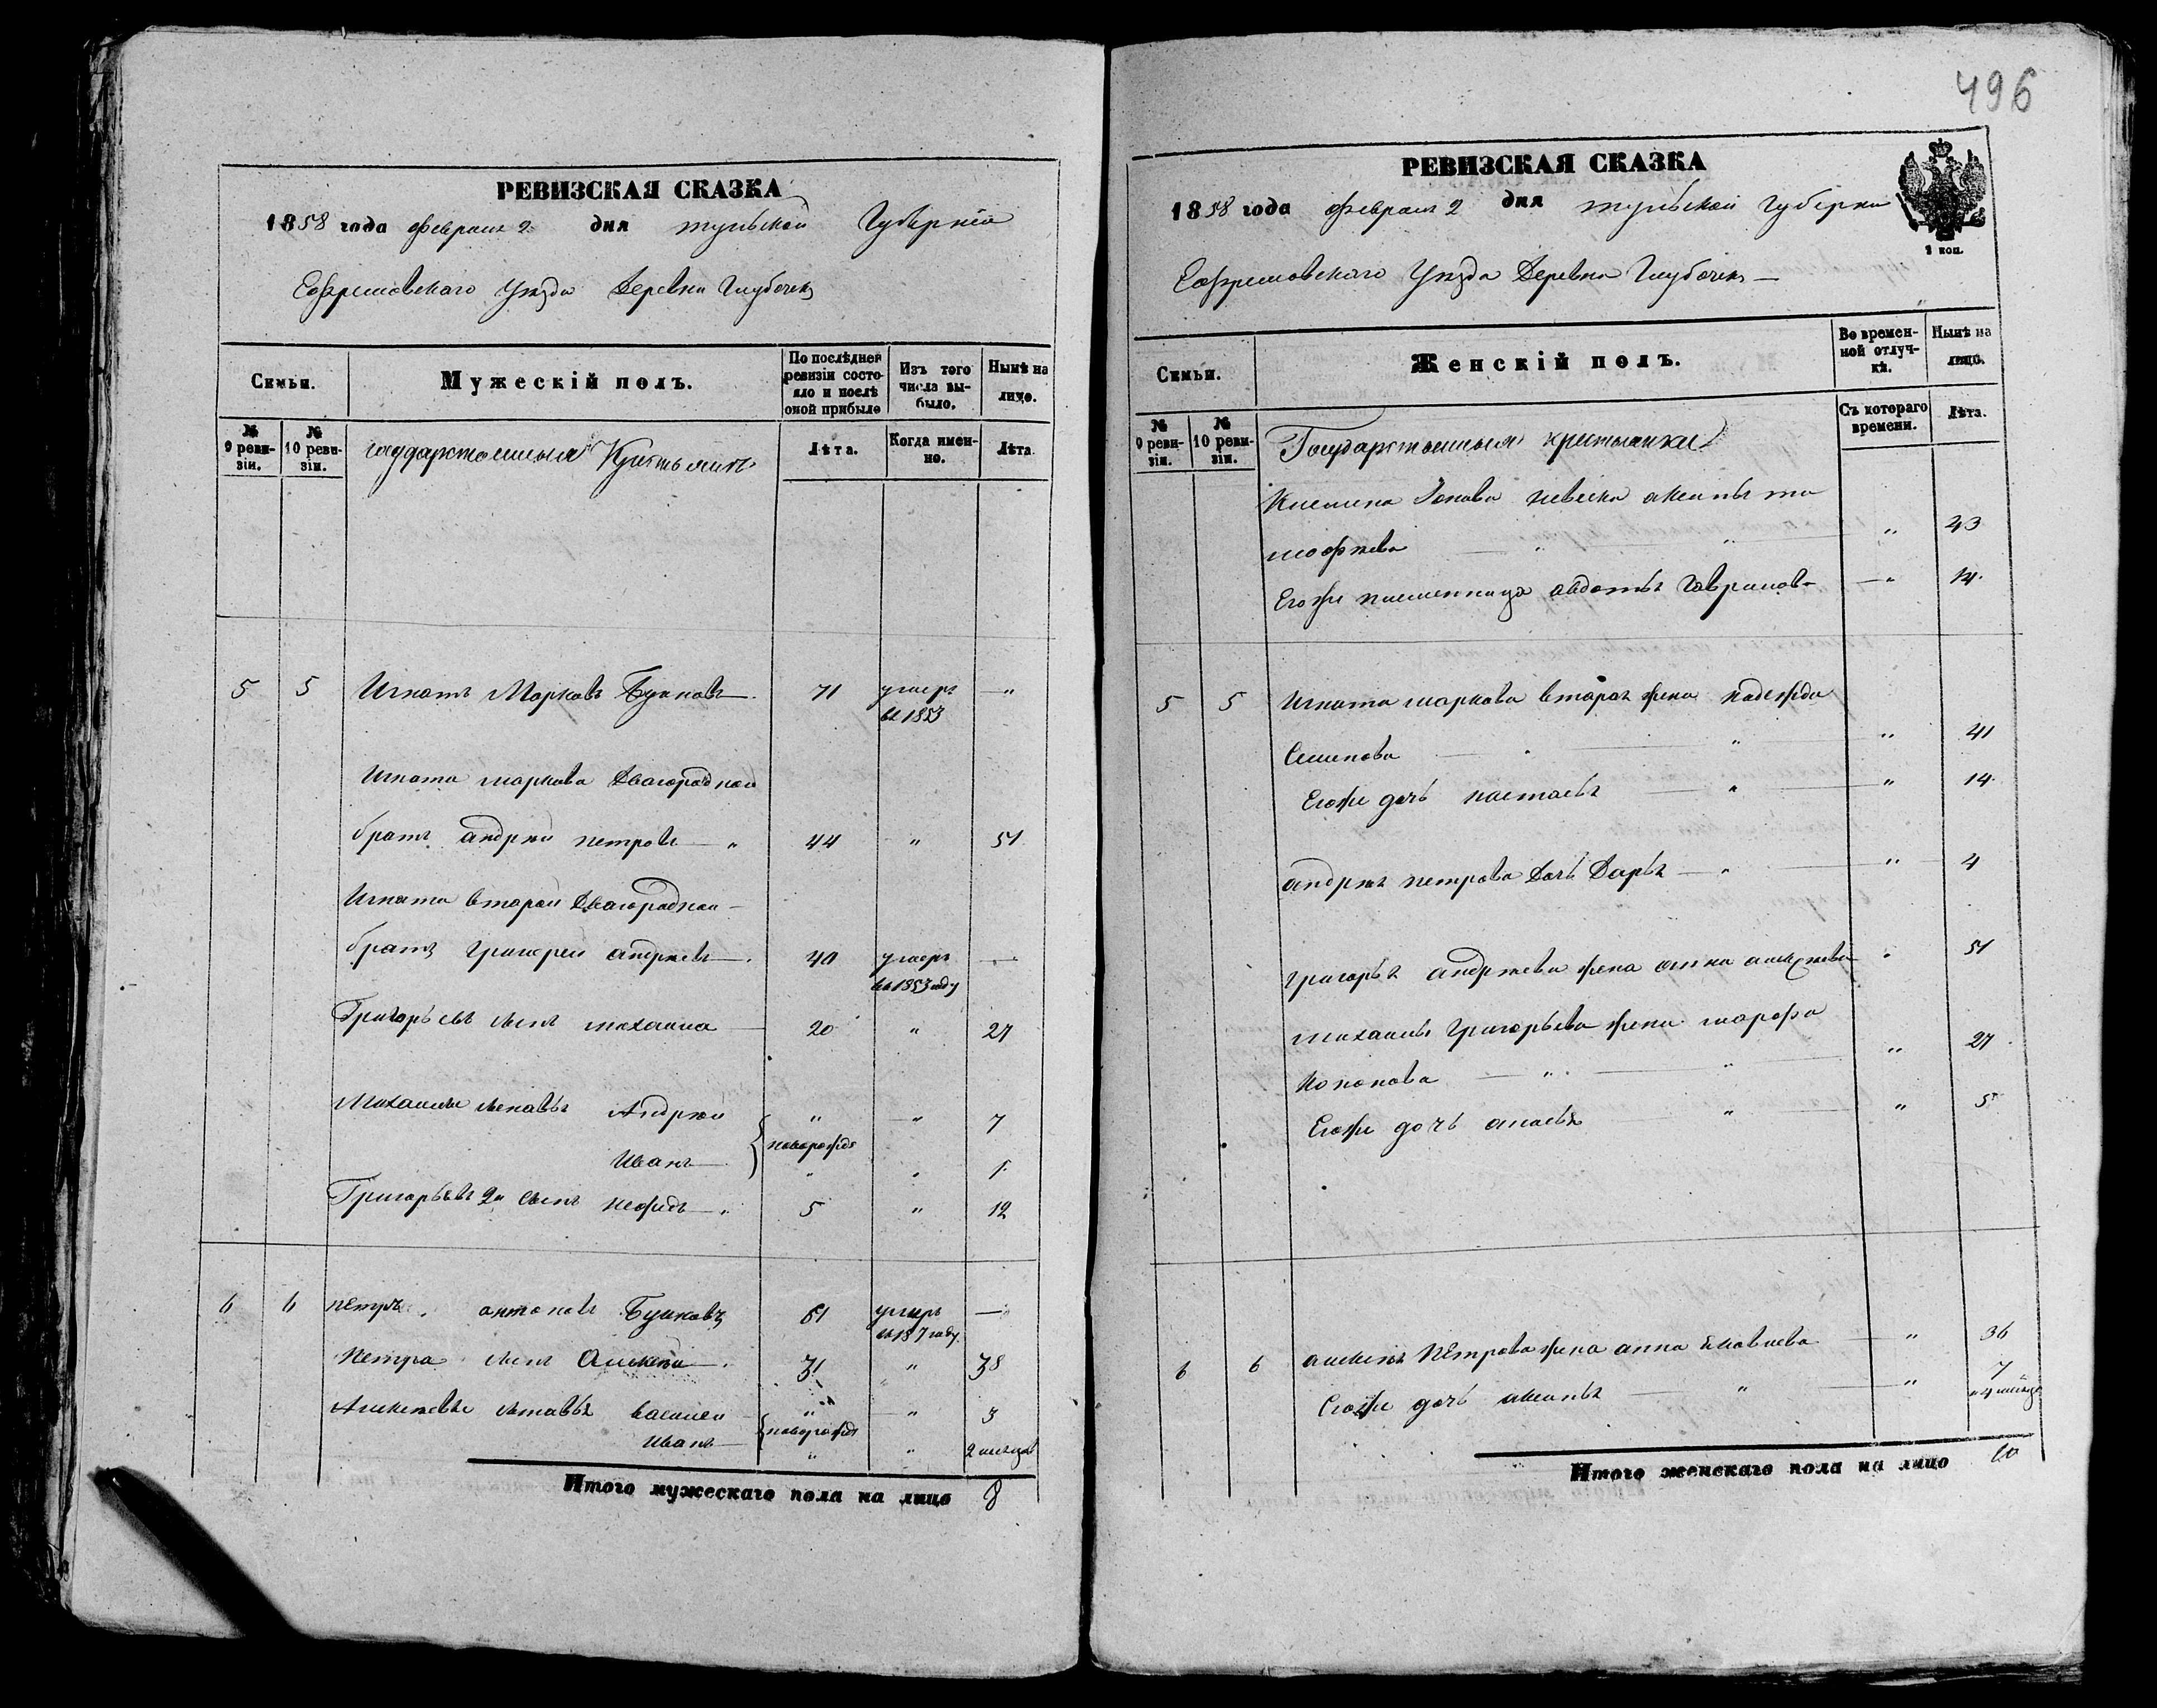 496
РЕВИЗСКАЯ СКАЗКА
1858 года февраля 2 дня тульской Губернiи
Ефремовскаго Уезда Деревни Глубочки
Семьи.
Мужескiй полъ.
По послѣдней ревизiи состояло и послѣ оной прибыло
Изъ того числа выбыло.
Нынѣ на лицо.
№ 9 ревизiи.
№ 10 ревизiи.
государственныя Крестьянъ
Лѣта.
Когда именно.
Лѣта.
5 5 Игнатъ Марковъ 71 умеръ — "
въ 1853
Игната маркова Двоюродной
братъ андрей петровъ — " 44 " 51
Игната второй Двоюродной —
братъ григорей андреевъ — 40 умеръ —
въ 1853 году
Григорьевъ сынъ михаила 20 " 27
Михаилы сыновья Андрей " " 7
новорожде
Иванъ " " 1
Григорьевъ 2й сынъ нефедъ — " 5 " 12
6 6 петръ антоновъ 61 умеръ —
Петра сынъ Алексей — 31 " 38
Алексеевы сыновья василей " " 3
новорожде
Иванъ — " " 2 месяца
Итого мужескаго пола на лицо 8
РЕВИЗСКАЯ СКАЗКА
1858 года февраля 2 дня тульской губернiи
2 коп.
Ефремовскаго Уезда Деревни Глубочки —
Семьи.
Женскiй полъ.
Во временной отлучкѣ.
Нынѣ на лицо.
№ 9 ревизiи.
№ 10 ревизiи.
Государственныя крестьянки
Съ котораго времени.
Лѣта.
невеска аксинья ти
мофеева — " — " — " 43
Егоже племенница авдотья Гаврилов — " 14.
5 5 Игната маркова вторая жена надежда
Семенова — " " 41
Егоже дочь настасья — " " 14.
андрея петрова Дочь Дарья — " " 4
григорья андреева жена анна алексеева " 51
михаилы Григорьева жена марфа
кононова — " — " " 27
Егоже дочь — " " 5
6 6 алексея Петрова жена анна — " 36
Егоже дочь аксинья — " — " 7
Итого женскаго пола на лицо 10